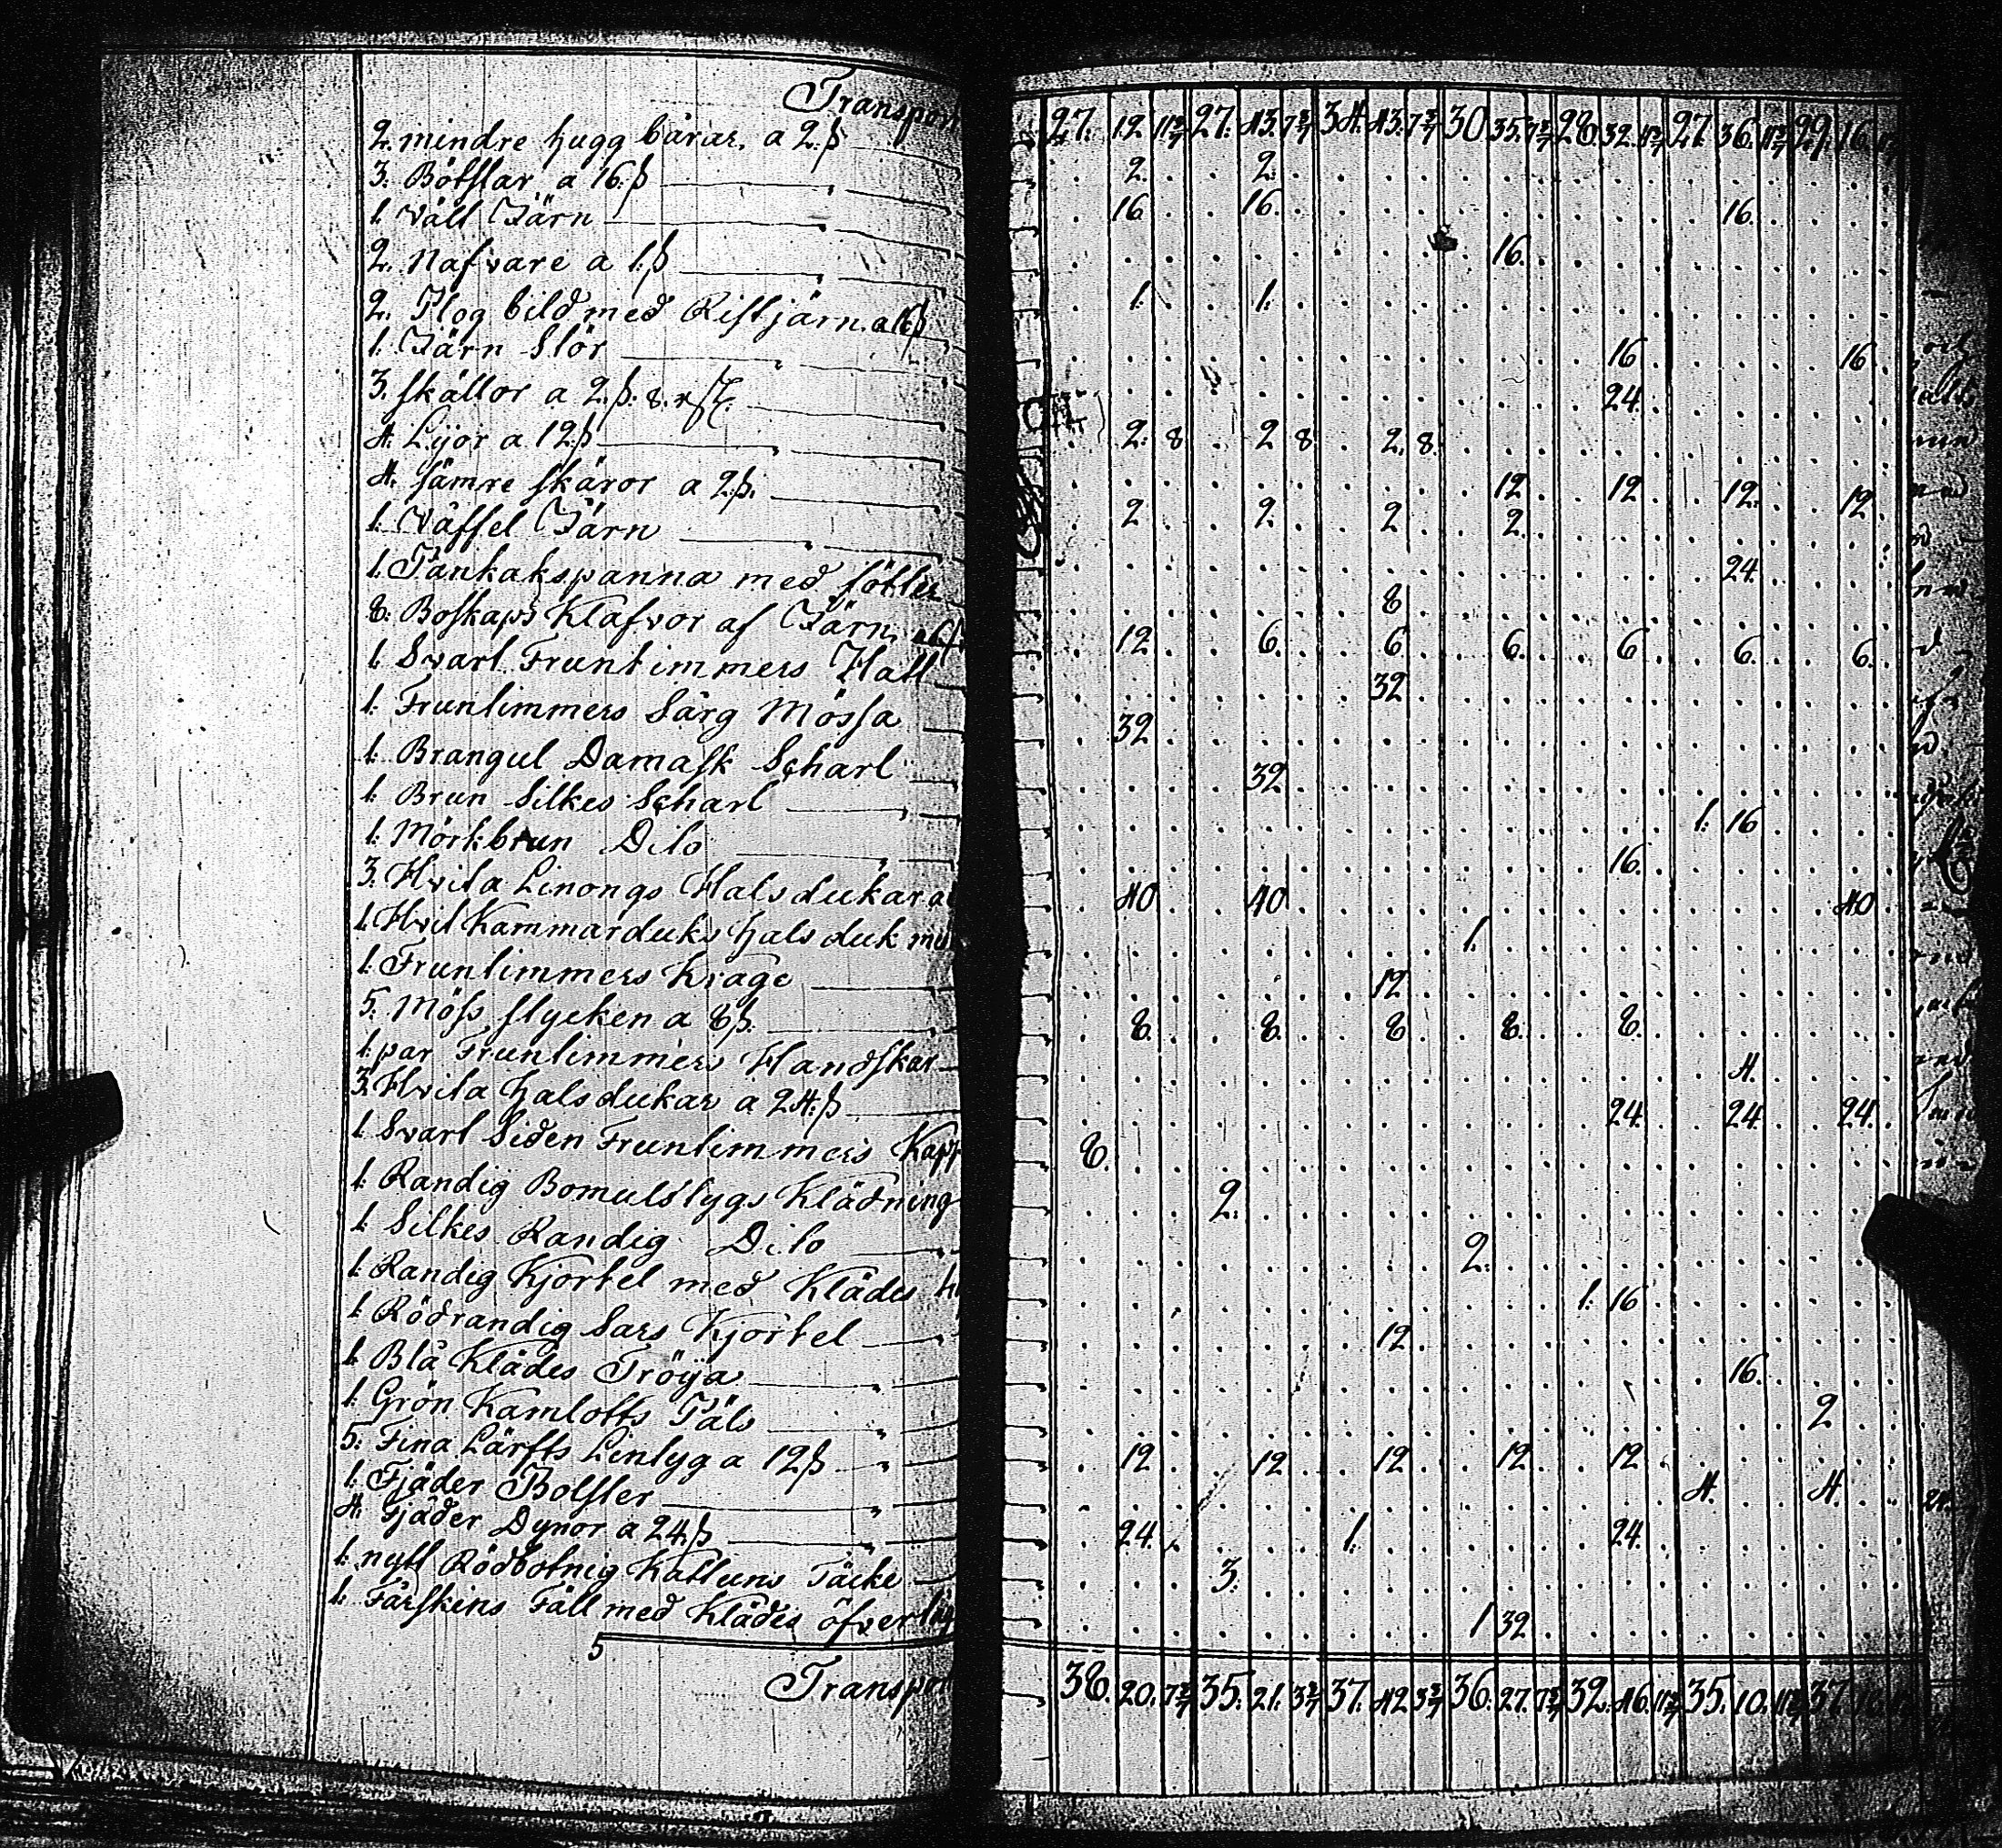 Transport 27. 12. 11 2/7 27. 43. 7 2/7 34. 43. 7 2/7 30. 35. 7 2/7 28. 32. 11 2/7 27. 36. 11 2/7 29. 16.
2. mindre hugg bårar, a 2 ß 2. 2.
3. Bötslar a 16 ß 16 16. 16.
1. Väll Järn 16.
2. Nafvare a 1. ß 1. 1.
2. Plog bild med Ristjärn. a 16 ß 16 16.
1. Järn Stör 24.
3. skällor a 2. ß. 8. rst. 2. 8 2 8 2. 8.
4. Lijor a 12 ß 12 12 12. 12
4. sämre skäror a 2. ß. 2 2 2 2.
1. Våffel Järn 24.
1. Pankakspanna med fötter 8
8. Boskaps Klafvor af Järn. a 6 12 6. 6 6. 6 6. 6.
1. Svart Fruntimmers Hatt 32
1. Fruntimmers Särg Mössa 32
1. Brangul Damask Scharl 32
1. Brun Silkes Scharl 1. 16
1. Mörkbrun Dito 16.
3. Hvita Linongs Halsdukar a 40 40 40
1. Hvit Kammarduks halsduk 1.
1. Fruntimmers Krage 12
5. Möss stycken a 8 ß. 8. 8. 8 8. 8.
1. par Fruntimmers Handskar 4.
3. Hvita halsdukar a 24. ß 24. 24 24.
1. Svart Siden Fruntimmers Kapp 8.
1. Randig Bomulstygs Klädning 2.
1. Silkes Randig Dito 2.
1. Randig Kjortel med Klädes 1. 16
1. Rödrandig Sars Kjortel 12
1. Blå Klädes Tröija 16.
1. Grön Kamlotts Päls 2
5. Fina Lärfts Lintyg a 12 ß 12 12 12 12 12
1. Fjäder Bolster 4. 4.
4. Fjäder Dynor a 24 ß 24. 1. 24.
1. nytt Rödbotnig Kattuns Täcke 3.
1. Fårskins Fäll med Klädes öfvertyg 1 32
5
Transport 38. 20. 7 2/7 35. 21. 3 2/7 37. 42 3 2/7 36. 27. 7 2/7 32. 46. 11 2/7 35. 10. 11 2/7 37